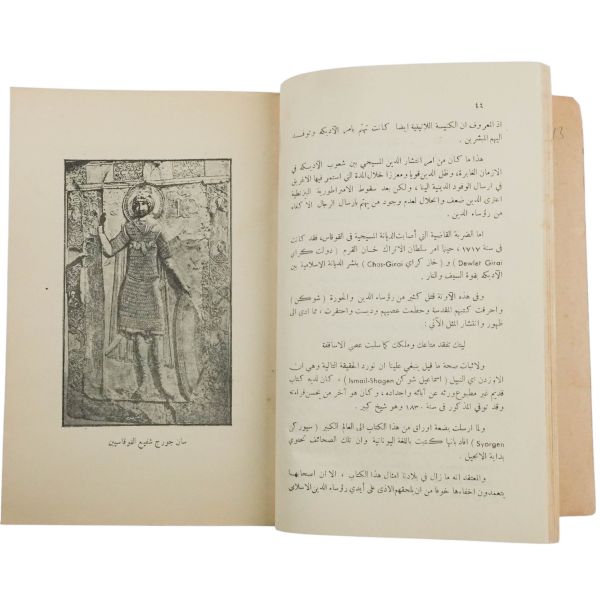 ٤٤
اذ المعروف ان الكنيسة اللاتينية ايضا كانت تهتم بامر الاديكه وتوفد
اليهم المبشرين .
هذا ما كان من امر انتشار الدين المسيحي بين شعوب الاديكه في
الازمان الغابرة، وظل الدين قويا ومعززا خلال المدة التي استمر فيها الاغريق
في ارسال الوفود الدينية الينا ، ولكن بعد سقوط الامبراطورية البزنطية
اعترى الدين ضعف وانحلال لعدم وجود من يهتم بارسال الرجال الاكفاء
من رؤساء الدين .
اما الضربة القاضية التي أصابت الديانة المسيحية في القوقاس، فقد كانت
في سنة ١٧١٧ ، حينما امر سلطان الاتراك لخان القرم ( دولت كراي
Dewlet Girai ) و ( خاز كراي Chas-Girai ) بنشر الديانة الاسلامية بين
الاديكه بقوة السيف والنار .
وفي هذه الآونة قتل كثير من رؤساء الدين والخورة ( شوكن )
واحرقت كتبهم المقدسة وحطمت عصيهم ودبست واحتقرت ، مما ادى الى
ظهور وانتشار المثل الآتي :
ليتك تفقد متاعك وملكك كما سلبت عصي الاساقفة
ولاثبات صحة ما قيل ينبغي علينا ان نورد الحقيقة التالية وهي ان
الاوزدن اي النبيل ( اسماعيل شوكن Ismail-Shogen ) ، كان لديه كتاب
قديم غير مطبوع ورثه عن آبائه واجداده ، وكان هو آخر من يحسن قراءته
وقد توفي المذكور في سنة ١٨٣٠ وهو شيخ كبير .
ولما ارسلت بضعة اوراق من هذا الكتاب الى العالم الكبير ( سيوركن
Syorgen ) افاد بانها كتبت باللغة اليونانية وان تلك الصحائف تحتوي
بداية الانجيل .
والمعتقد انه ما زال في بلادنا امثال هذا الكتاب ، الا ان اصحابها
يتعمدون اخفاءها خوفا من ان يلحقهم الاذى على أيدي رؤساء الدين الاسلامي
سان جورج شفيع القوقاسيين
13